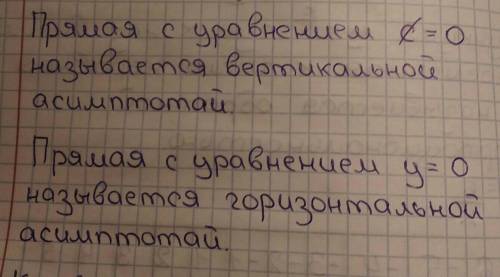 Прямая с уравнением x=0
называется вертикальной
асимптотай.
Прямая с уравнением y=0
называется горизонтальной
асимптотай.